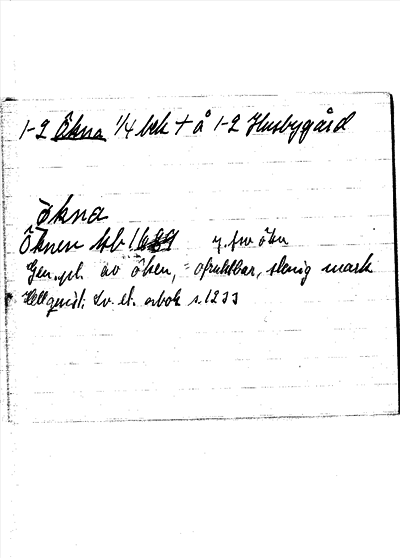 1-2 Ökna 1/4 bek + å 1-2 Husbygård
Økna
Öknen hb 1689 y. fsv ökn
Gen. pl. av öken, = ofruktbar, stenig mark
Hellquist: Sv. et. orbok s. 1233